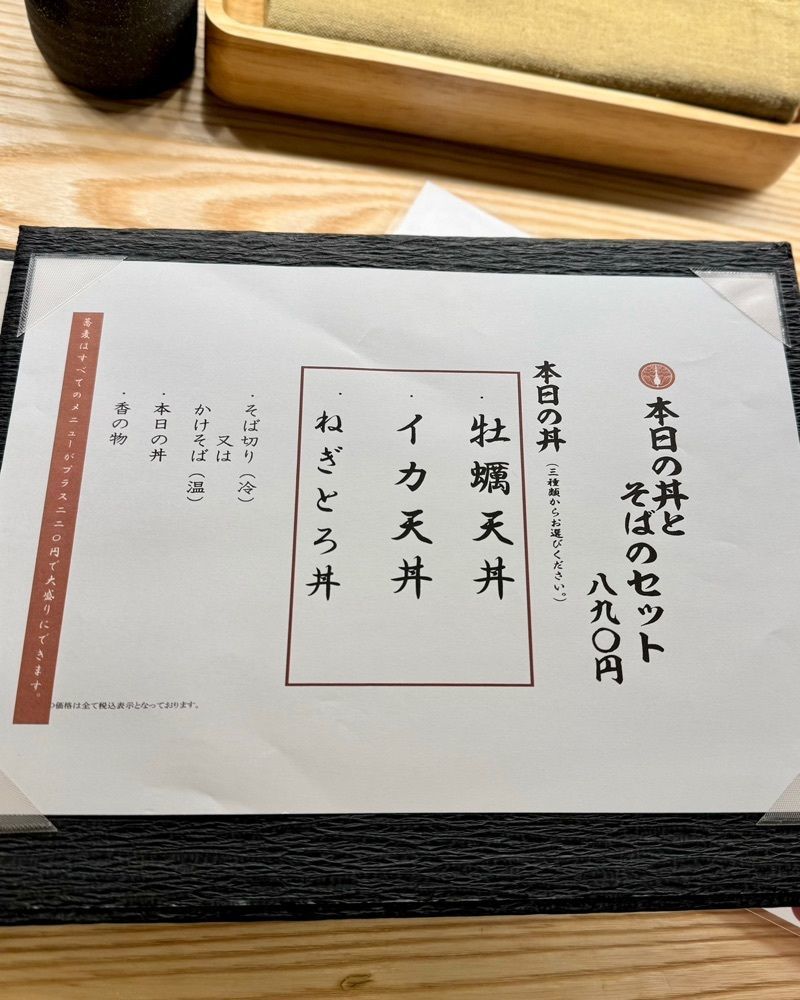 本日の丼と
そばのセット
八九〇円
本日の丼
(三種類からお選びください。)
・牡蠣天丼
・イカ天丼
・ねぎとろ丼
・そば切り(冷)
又は
かけそば(温)
・本日の丼
・香の物
蕎麦はすべてのメニューがプラス二二〇円で大盛りにできます。
価格は全て税込表示となっております。